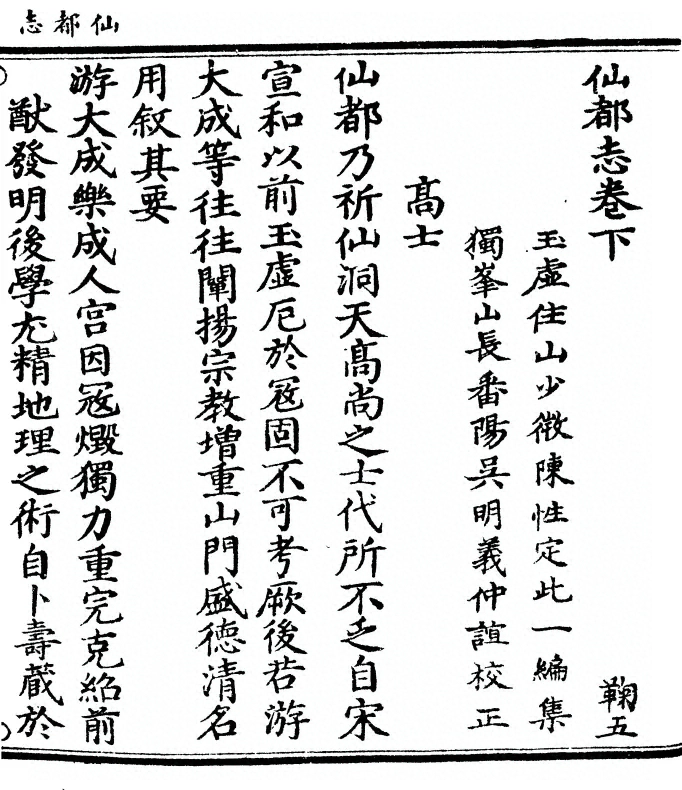 仙都志
仙都志卷下
鞠五
玉虛住山少微陳性定此一編集
獨峯山長番陽吳明義仲誼校正
髙士
仙都乃祈仙洞天髙尚之士代所不乏自宋
宣和以前玉虛厄於寇固不可考厥後若游
大成等往往闡揚宗教增重山門盛德清名
用敘其要
游大成樂成人宫因寇燬獨力重完克紹前
猷發明後學尤精地理之術自卜壽蔵於